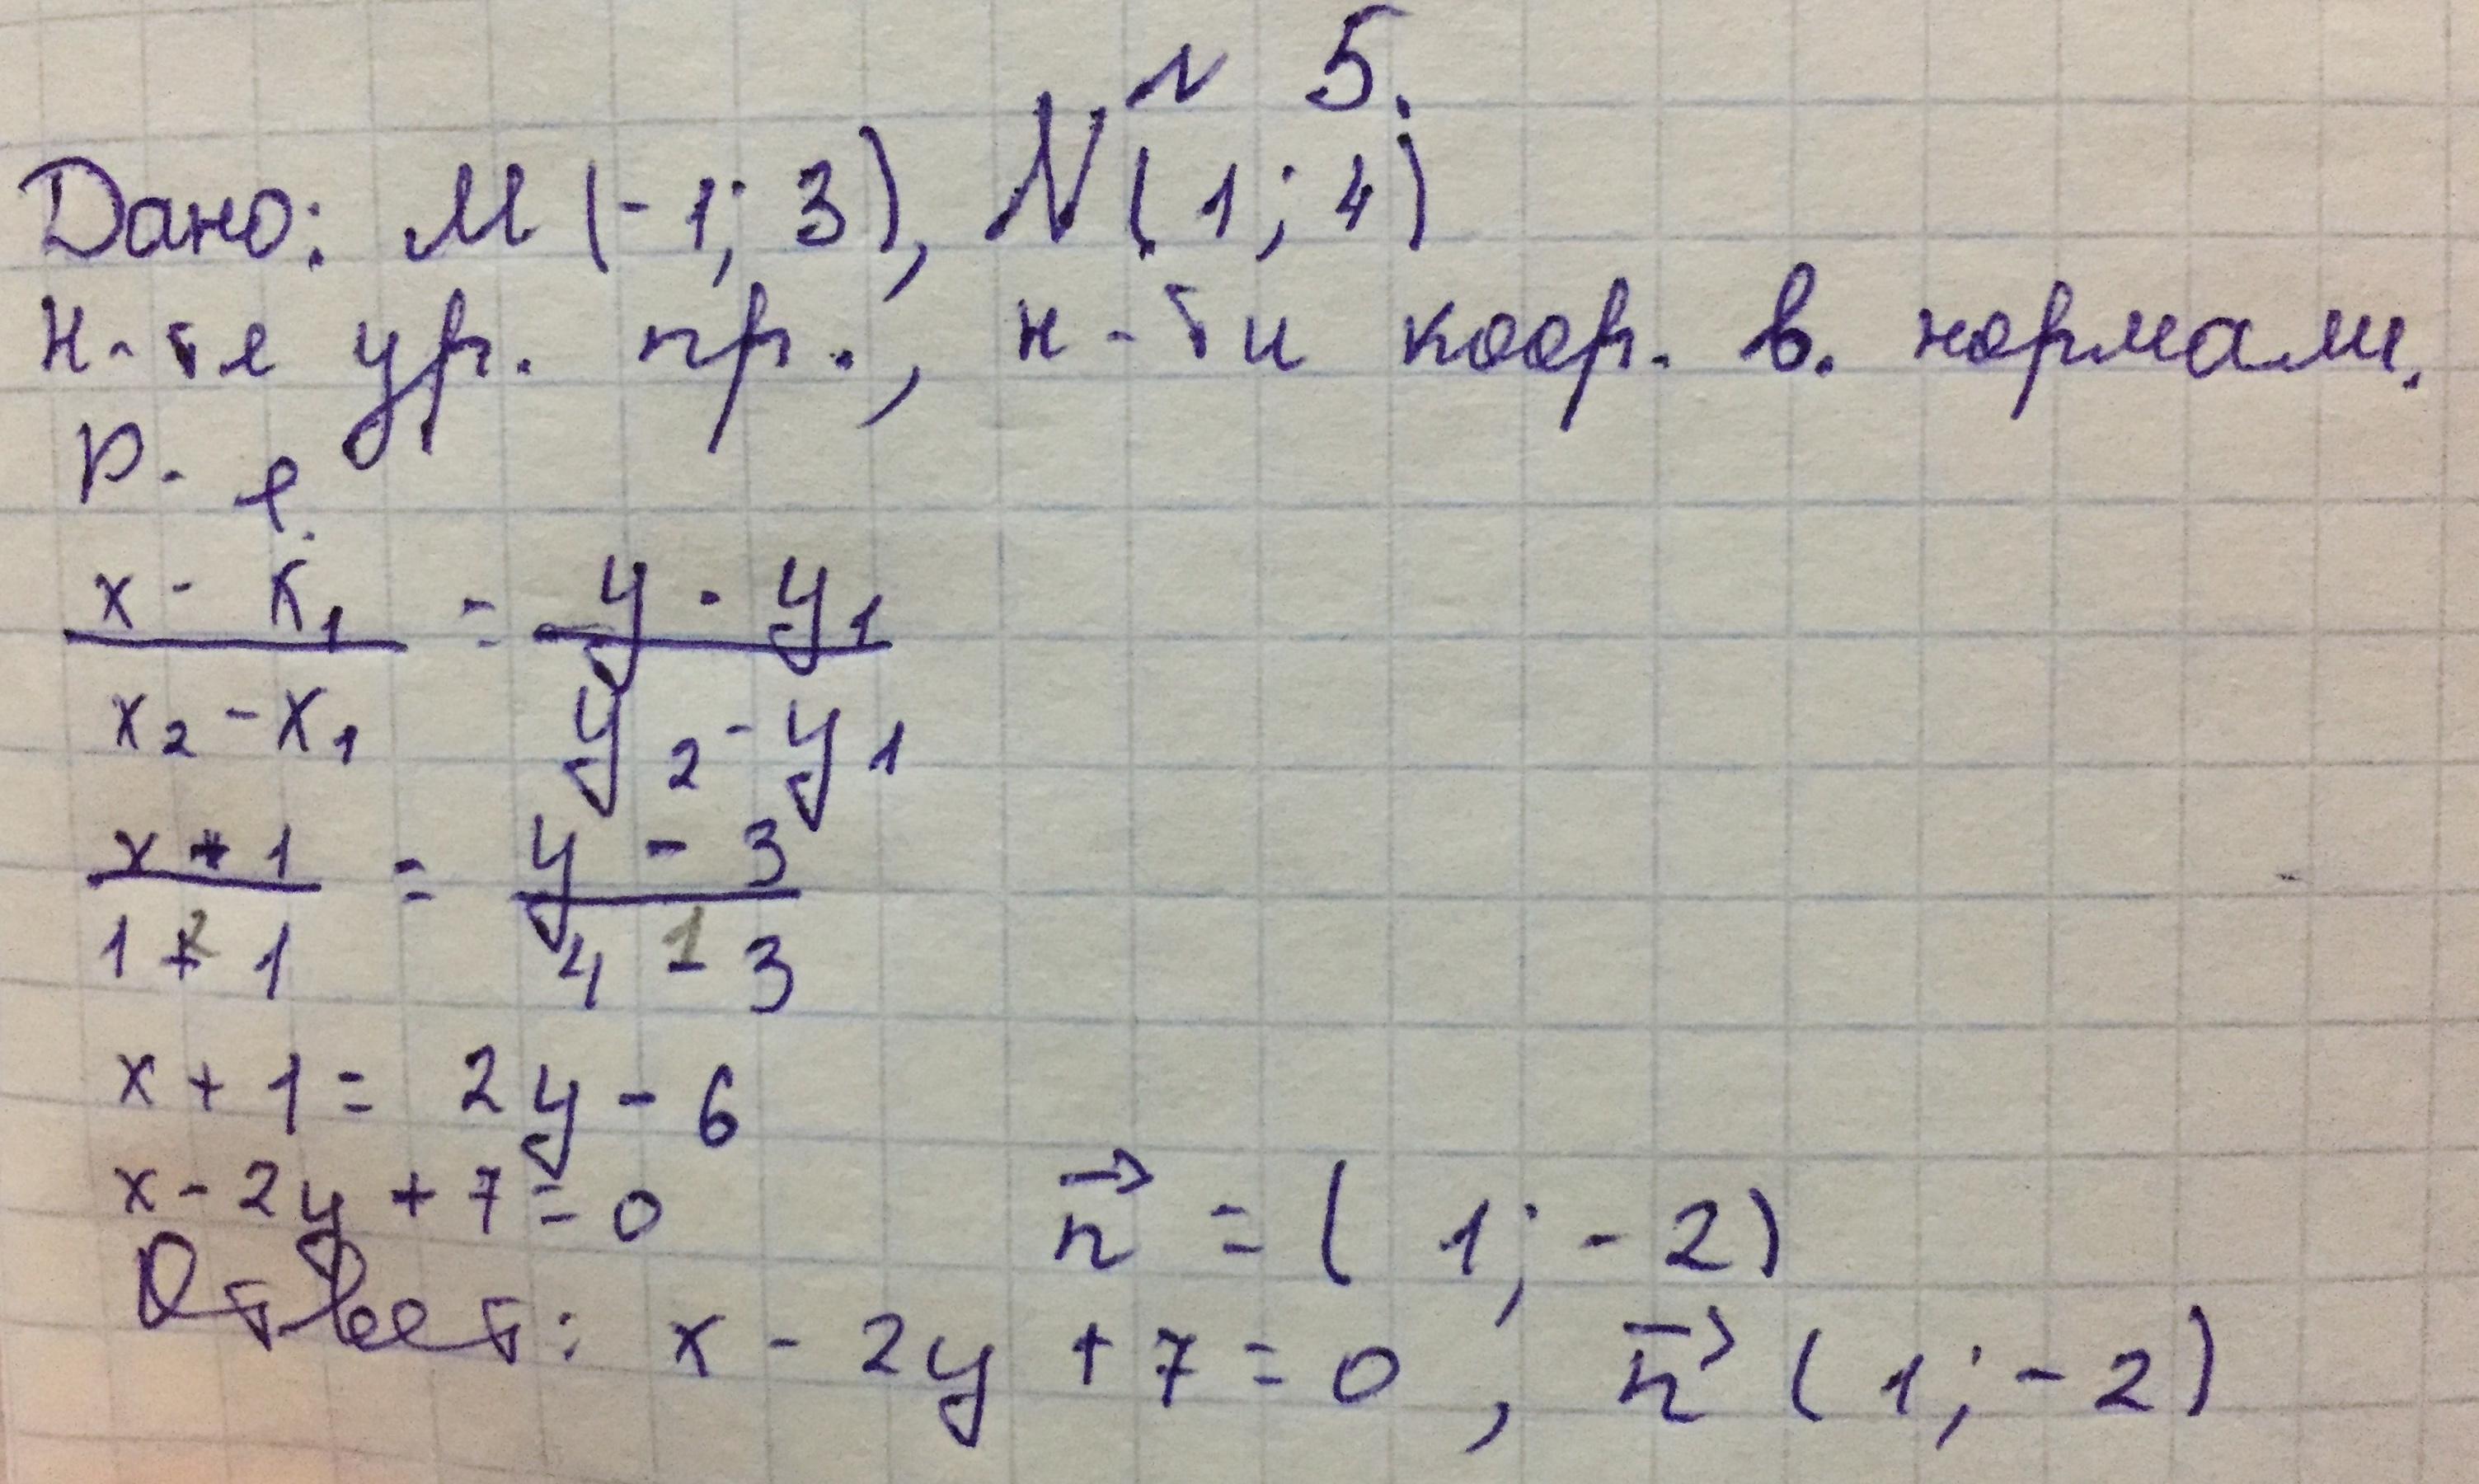 № 5.
Дано: М (-1; 3), N (1; 4)
Н-те ур. пр., н-ти коор. в. нормали.
Р-е.
x - x₁ = y - y₁
x₂ - x₁ y₂ - y₁
x + 1 = y - 3
2 1
1 + 1 4 - 3
x + 1 = 2y - 6
x - 2y + 7 = 0 n⃗ = (1; -2)
Ответ: x - 2y + 7 = 0, n⃗ (1; -2)